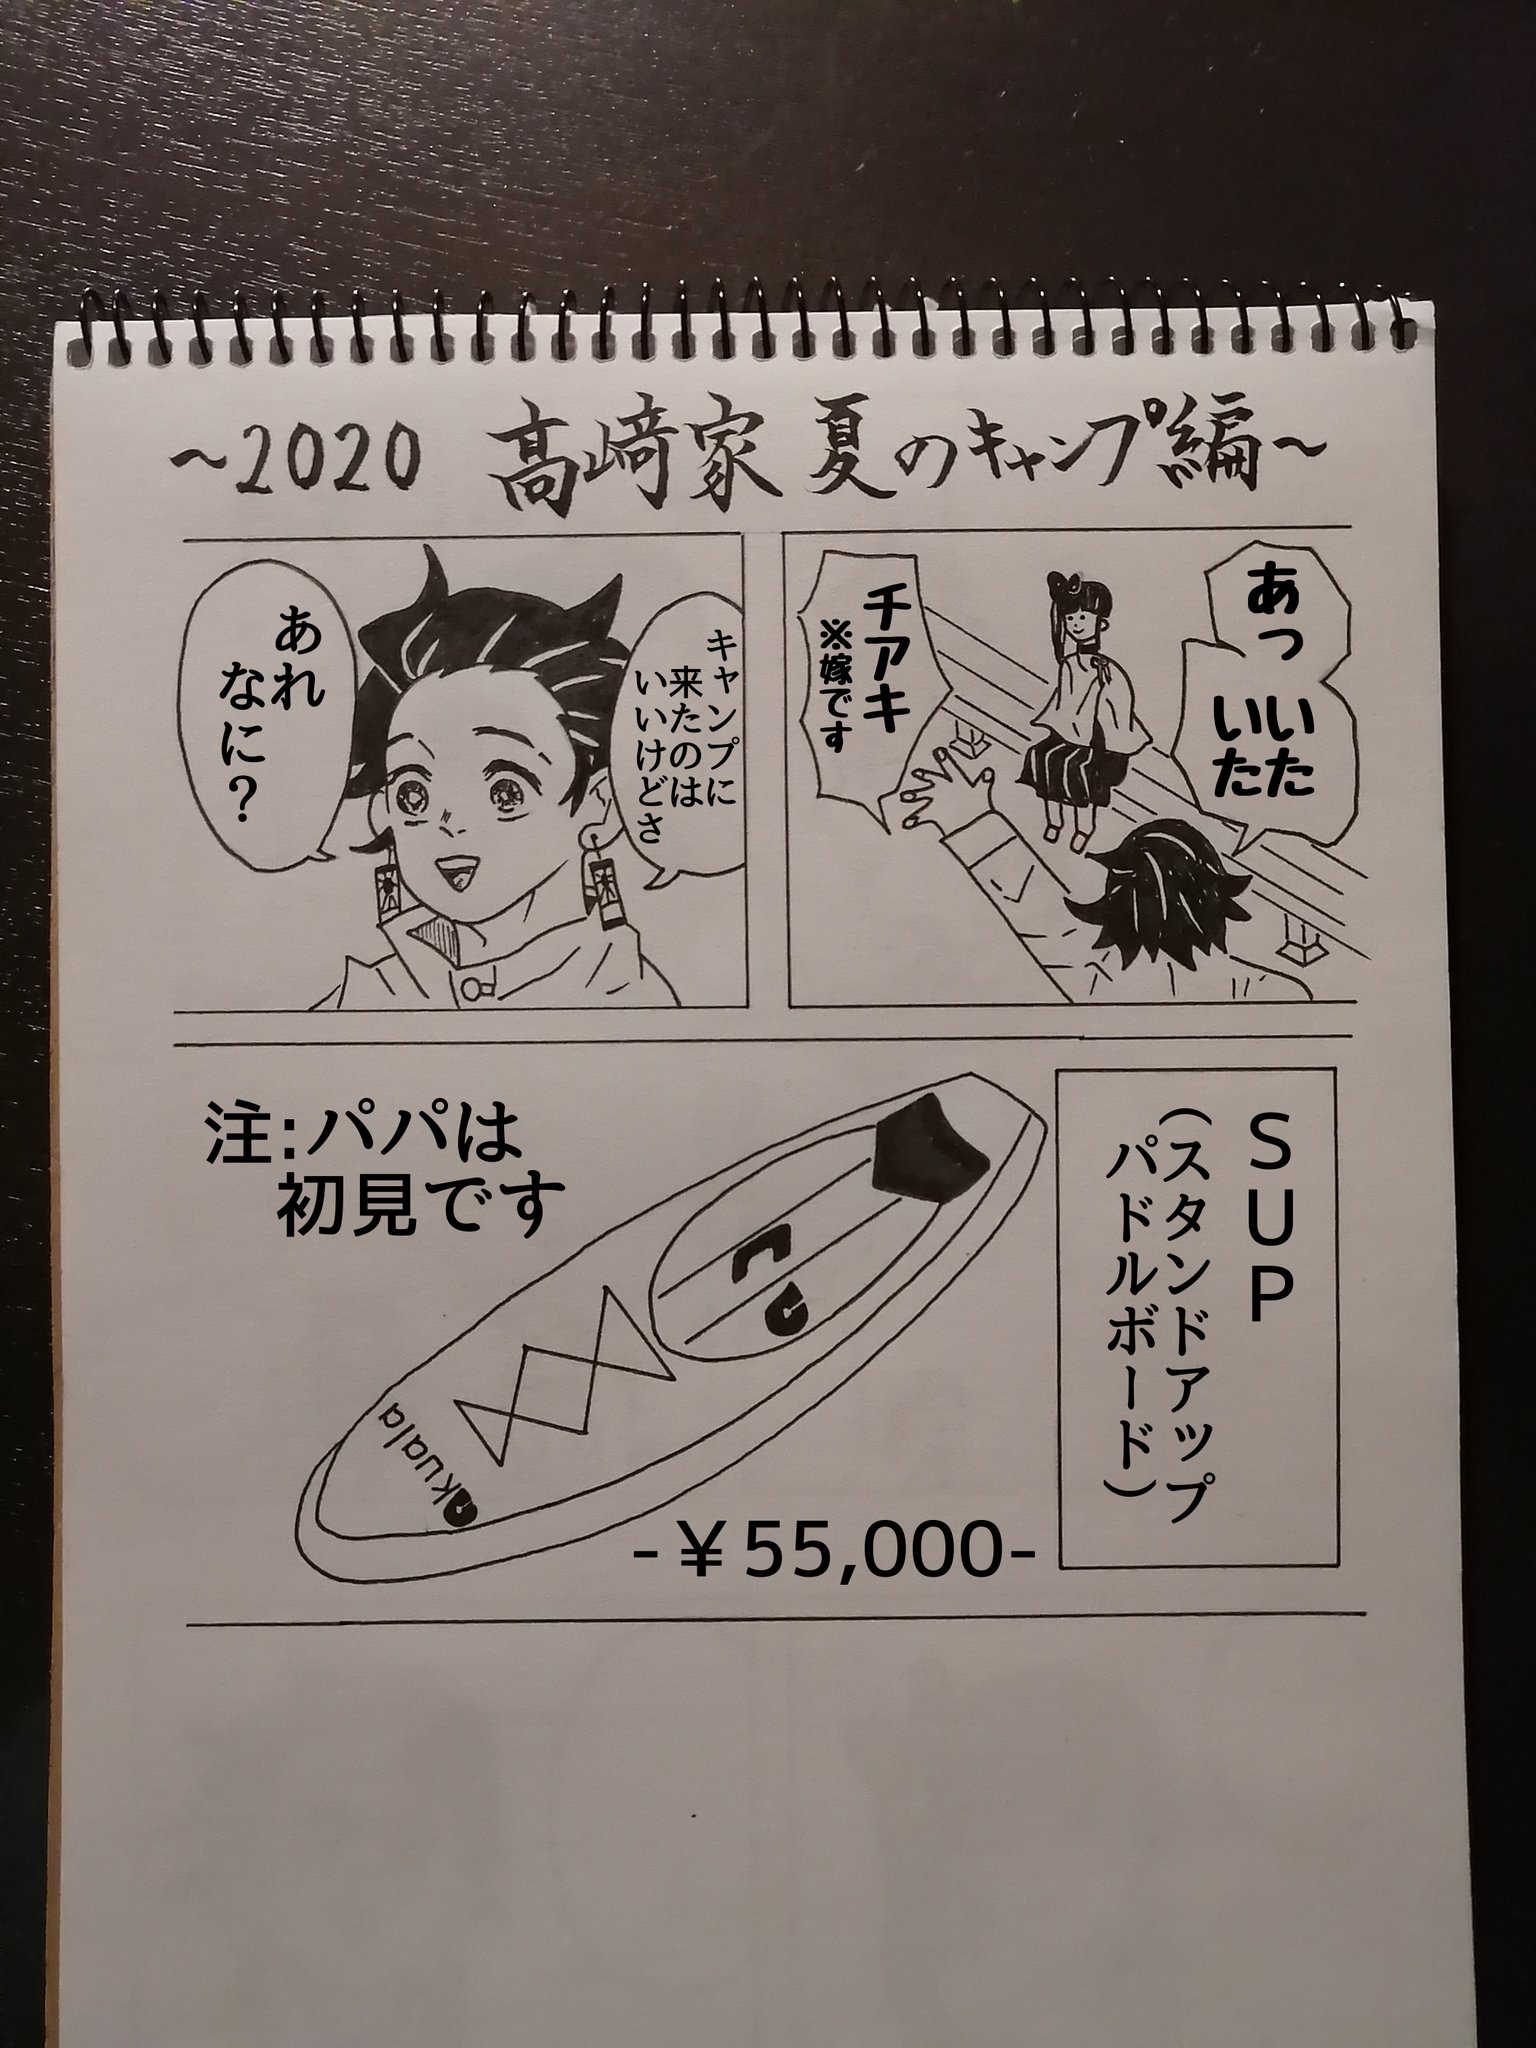 ～2020 髙﨑家 夏のキャンプ編～
あっ
いた
いた
チアキ
※嫁です
キャンプに
来たのは
いいけどさ
あれ
なに？
SUP
（スタンドアップ
パドルボード）
注:パパは
初見です
kuala
-￥55,000-